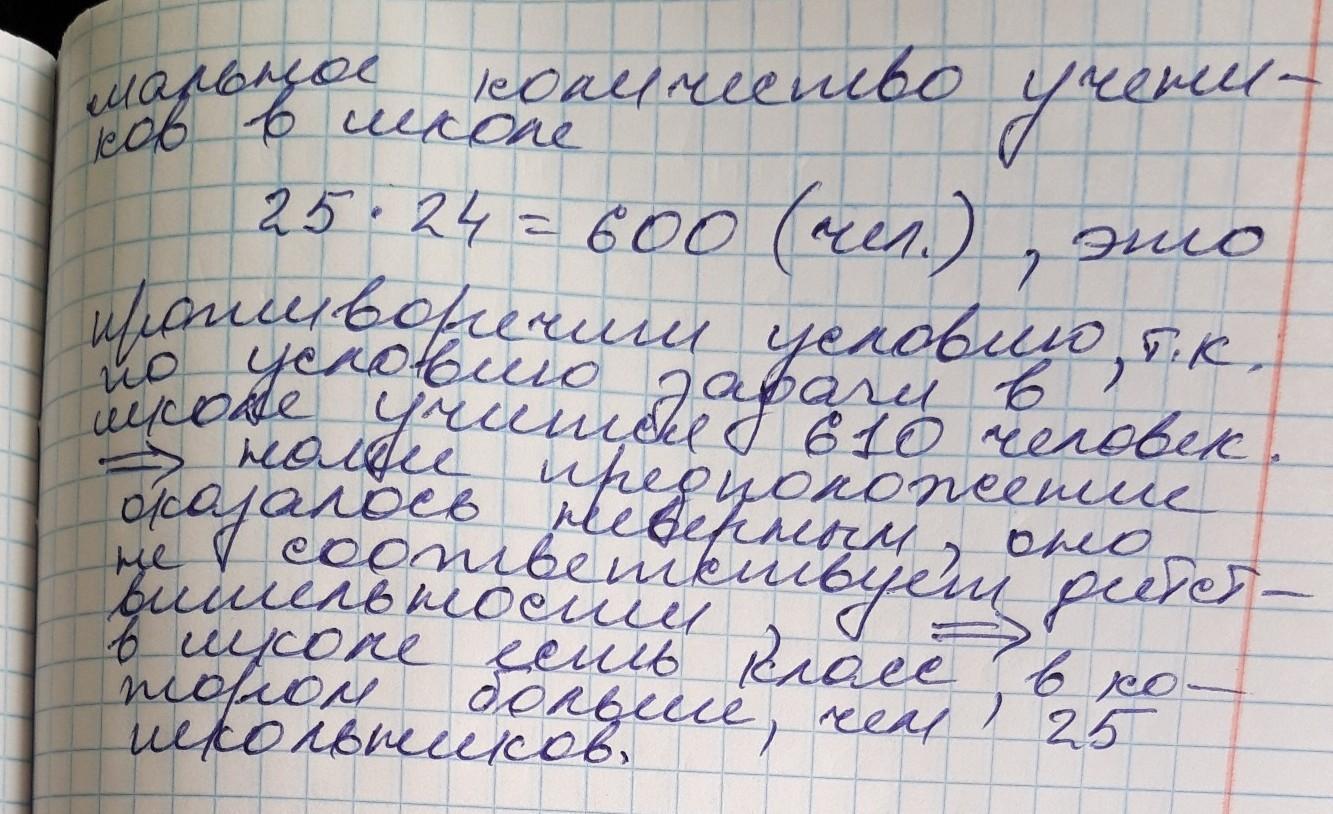 мальное количество учени-
ков в школе
25 · 24 = 600 (чел.), это
противоречит условию, т.к.
по условию задачи в
школе учится 610 человек.
⇒ наше предположение
оказалось неверным, оно
не соответствует дейст-
вительности, ⇒
в школе есть класс, в ко-
тором больше, чем 25
школьников.